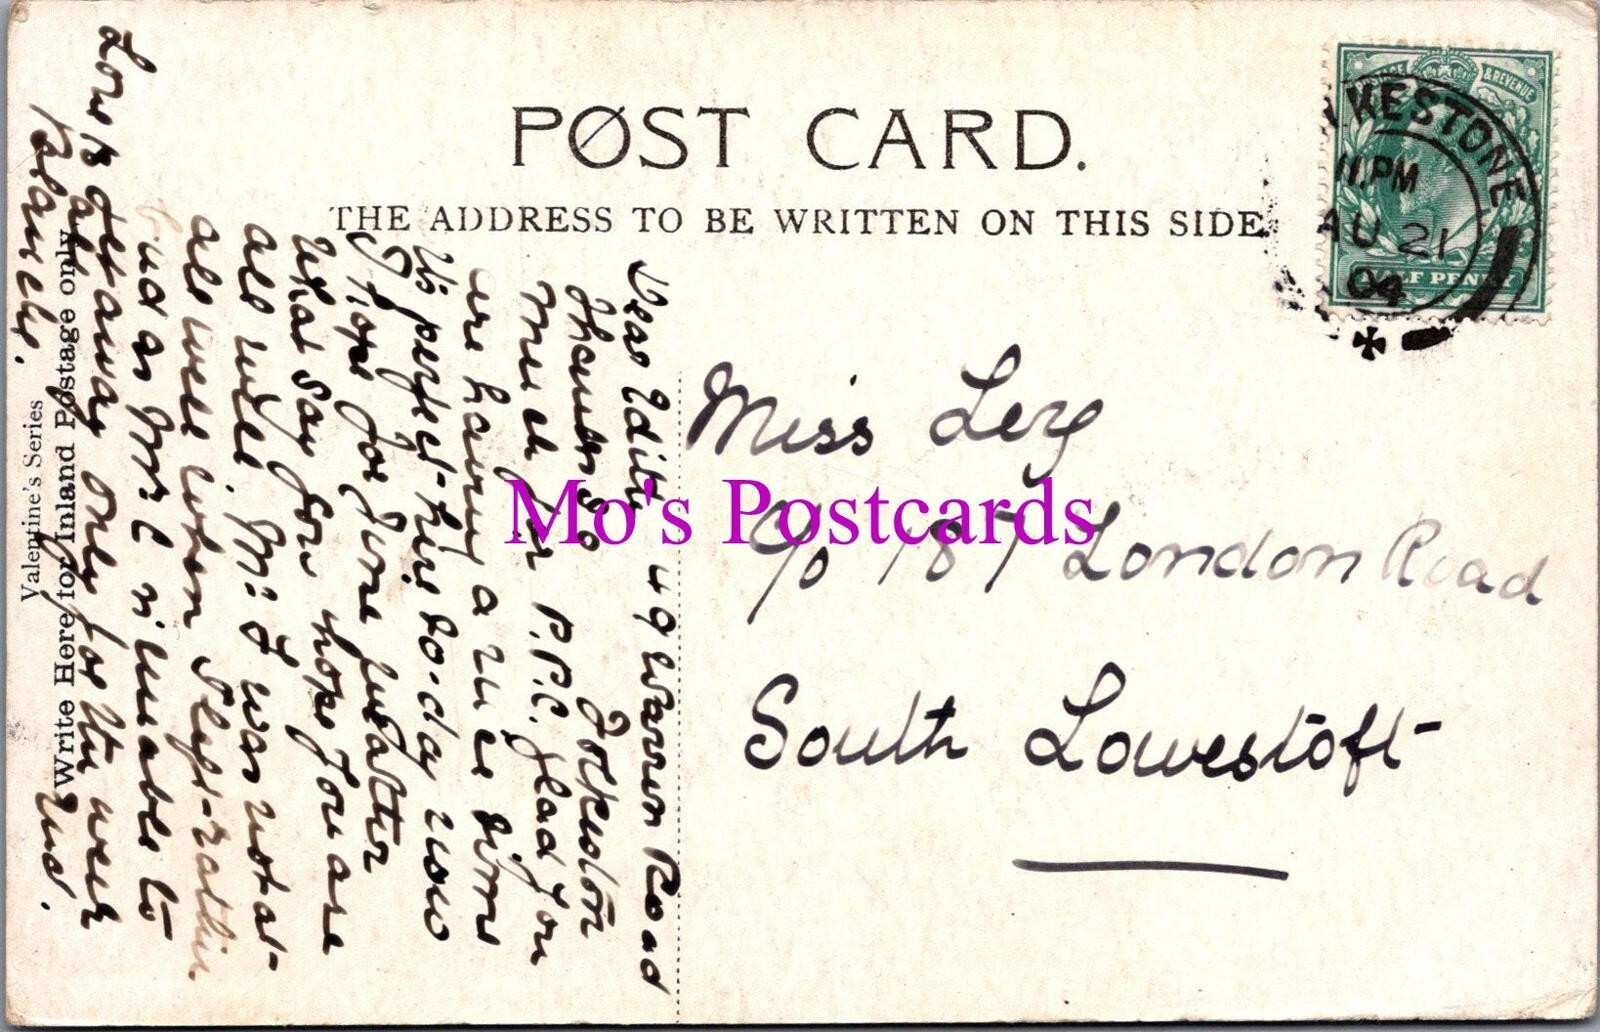 POST CARD.
THE ADDRESS TO BE WRITTEN ON THIS SIDE
POSTAGE & REVENUE
HALF PENNY
KESTONE
11.PM
AU 21
04
Miss Levy
c/o 187 London Road
South Lowestoft
Mo's Postcards
Valentine's Series
Write Here for Inland Postage only
49 Warren Road
Folkeston
Dear Edith
Thanks so
much for P.P.C. glad you
are having a nice time
it's perfect here to-day now
I hope for fine weather
what say you hope you are
all well Mrs F was not at
all well when I left - rather
bad as Mr C is unable to
get away only for the week
end.
Love to all